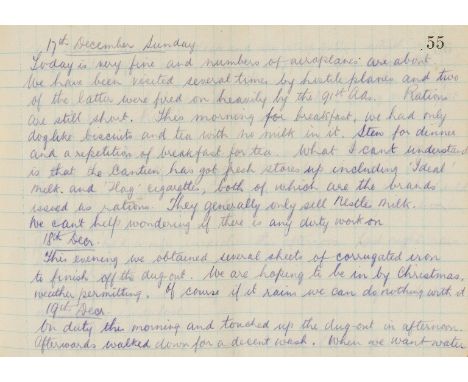 55
17th December Sunday
Today is very fine and numbers of airoplanes are about.
We have been visited several times by hostile planes and two
of the latter were fired on heavily by the 91st A.A. Rations
are still short. This morning for breakfast, we had only
doglike biscuits and tea with no milk in it. Stew for dinner
and a repetition of breakfast for tea. What I can't understand
is that the Canteen has got fresh stores up including 'Ideal'
milk and 'Flag' cigarettes, both of which are the brands
issued as rations. They generally only sell Nestles Milk.
We can't help wondering if there is any dirty work on
18th Decr.
This evening we obtained several sheets of corrugated iron
to finish off the dug-out. We are hoping to be in by Christmas,
weather permitting. Of course if it rains we can do nothing with it
19th Decr
On duty the morning and touched up the dug-out in afternoon.
Afterwards walked down for a decent wash. When we want water